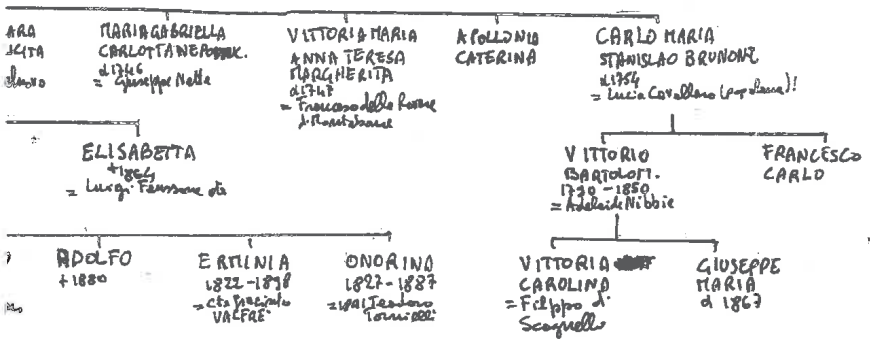 ARA
MARIA GABRIELLA
CARLOTTA NEPOMUK.
d 1746
= Giuseppe Natta
VITTORIA MARIA
ANNA TERESA
MARGHERITA
d 1747
= Francesco della Rovere
di Montabone
APOLLONIA
CATERINA
CARLO MARIA
STANISLAO BRUNONE
d 1754
= Lucia Cavallero (popolana)!
ELISABETTA
+1864
= Luigi
VITTORIO
BARTOLOM.
1790-1850
= Adelaide Nibbie
FRANCESCO
CARLO
ADOLFO
+1880
ERMINIA
1822-1898
= Cte
VALFRE'
ONORINA
1827-1887
Teodoro
Tornielli
VITTORIA
CAROLINA
= Filippo di
Scagnello
GIUSEPPE
MARIA
d 1867